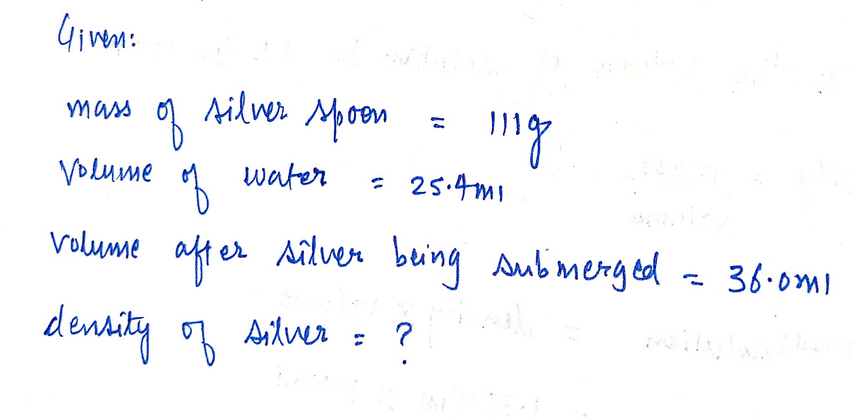 Given:
mass of silver spoon = 111g
Volume of water = 25.4ml
Volume after silver being submerged = 36.0ml
density of silver = ?